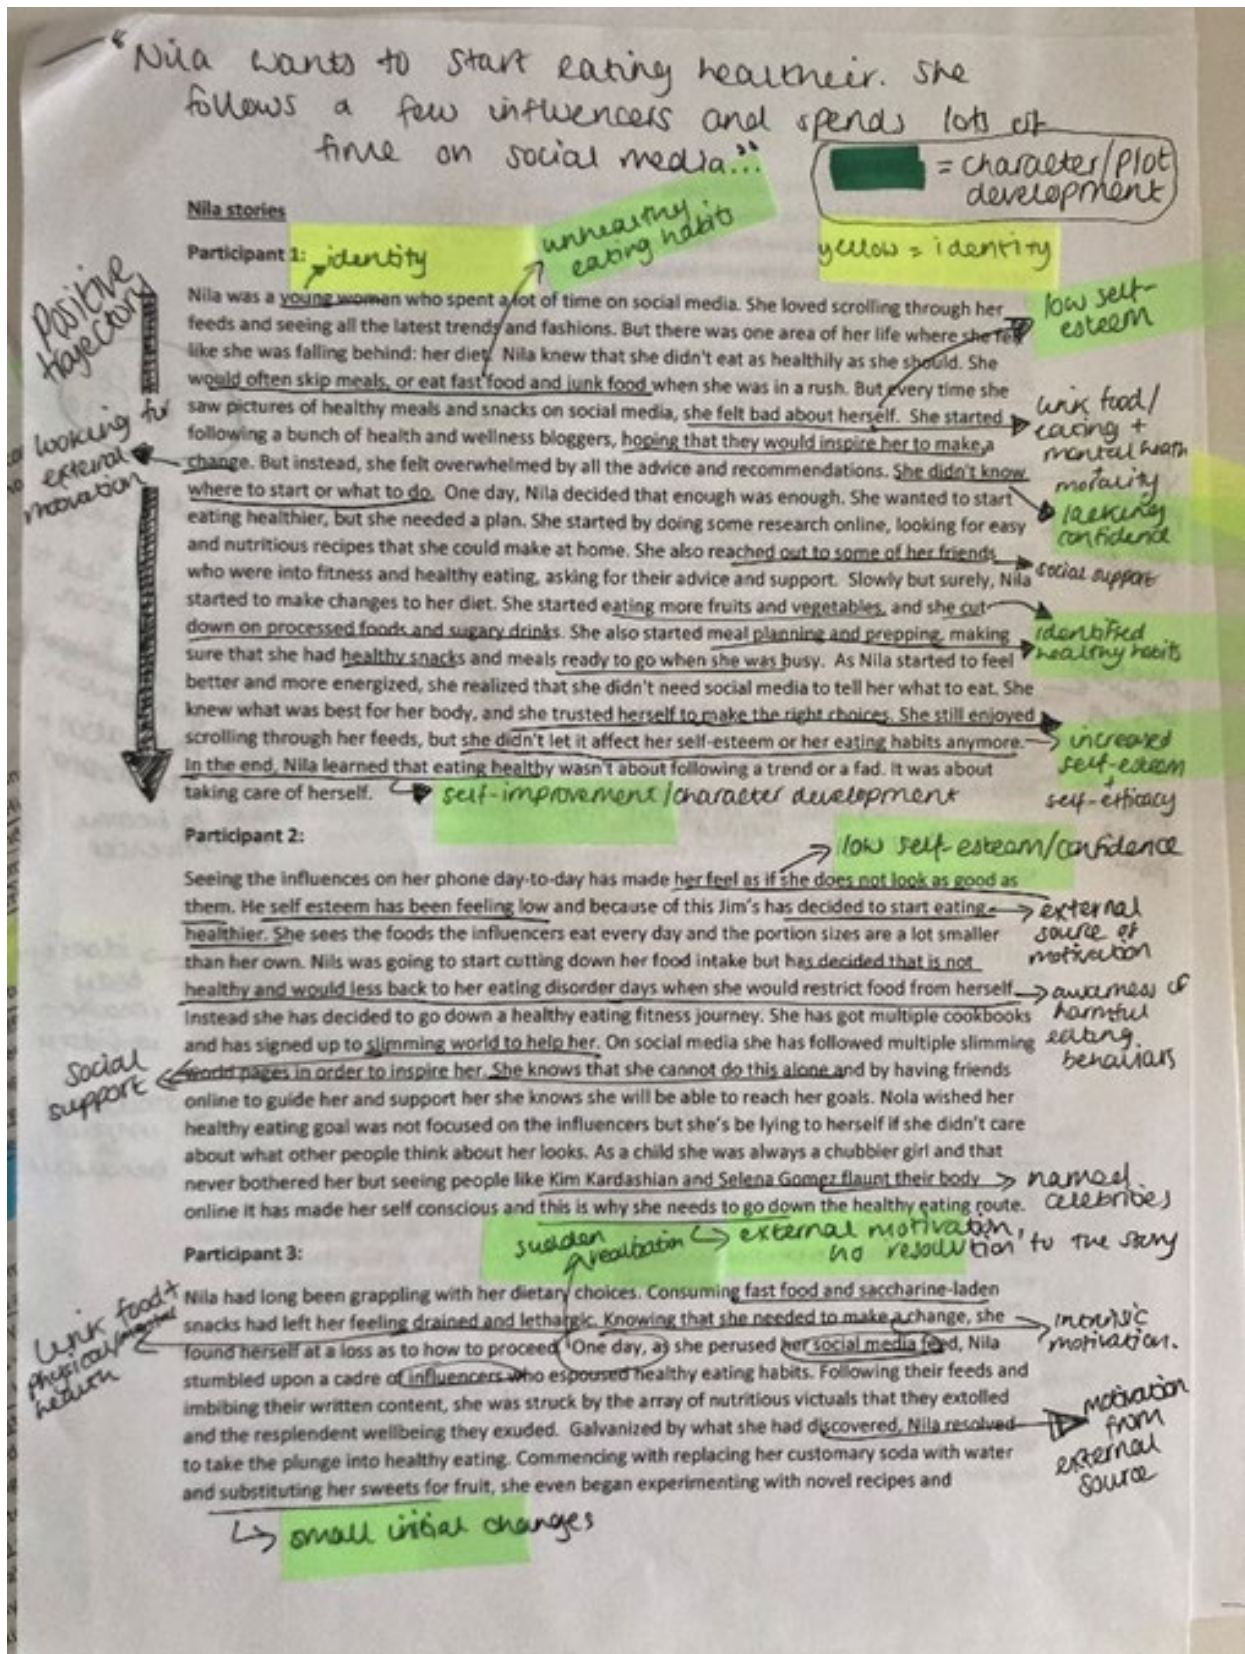 "Nila wants to start eating healthier. She
follows a few influencers and spends lots of
time on social media..."
= character/plot
development
Nila stories
unhealthy
eating habits
Participant 1:
identity
yellow = identity
Positive
trajectory
Nila was a young woman who spent a lot of time on social media. She loved scrolling through her
low self-
esteem
feeds and seeing all the latest trends and fashions. But there was one area of her life where she felt
like she was falling behind: her diet. Nila knew that she didn't eat as healthily as she should. She
would often skip meals, or eat fast food and junk food when she was in a rush. But every time she
saw pictures of healthy meals and snacks on social media, she felt bad about herself. She started
link food/
eating +
mental health
+
morality
looking for
external
motivation
following a bunch of health and wellness bloggers, hoping that they would inspire her to make a
change. But instead, she felt overwhelmed by all the advice and recommendations. She didn't know
where to start or what to do. One day, Nila decided that enough was enough. She wanted to start
lacking
confidence
eating healthier, but she needed a plan. She started by doing some research online, looking for easy
and nutritious recipes that she could make at home. She also reached out to some of her friends
social support
who were into fitness and healthy eating, asking for their advice and support. Slowly but surely, Nila
started to make changes to her diet. She started eating more fruits and vegetables, and she cut
down on processed foods and sugary drinks. She also started meal planning and prepping, making
identified
healthy habits
sure that she had healthy snacks and meals ready to go when she was busy. As Nila started to feel
better and more energized, she realized that she didn't need social media to tell her what to eat. She
knew what was best for her body, and she trusted herself to make the right choices. She still enjoyed
scrolling through her feeds, but she didn't let it affect her self-esteem or her eating habits anymore.
increased
self-esteem
+
self-efficacy
In the end, Nila learned that eating healthy wasn't about following a trend or a fad. It was about
taking care of herself.
self-improvement/character development
Participant 2:
low self-esteam/confidence
Seeing the influences on her phone day-to-day has made her feel as if she does not look as good as
them. He self esteem has been feeling low and because of this Jim's has decided to start eating
external
source of
motivation
healthier. She sees the foods the influencers eat every day and the portion sizes are a lot smaller
than her own. Nils was going to start cutting down her food intake but has decided that is not
healthy and would less back to her eating disorder days when she would restrict food from herself.
awareness of
harmful
eating
behaviours
Instead she has decided to go down a healthy eating fitness journey. She has got multiple cookbooks
and has signed up to slimming world to help her. On social media she has followed multiple slimming
social
support
world pages in order to inspire her. She knows that she cannot do this alone and by having friends
online to guide her and support her she knows she will be able to reach her goals. Nola wished her
healthy eating goal was not focused on the influencers but she's be lying to herself if she didn't care
about what other people think about her looks. As a child she was always a chubbier girl and that
never bothered her but seeing people like Kim Kardashian and Selena Gomez flaunt their body
named
celebrities
online it has made her self conscious and this is why she needs to go down the healthy eating route.
external motivation,
no resolution to the story
Participant 3:
sudden
realisation
Nila had long been grappling with her dietary choices. Consuming fast food and saccharine-laden
snacks had left her feeling drained and lethargic. Knowing that she needed to make a change, she
link food +
physical/mental
health
intrinsic
motivation.
found herself at a loss as to how to proceed. One day, as she perused her social media feed, Nila
stumbled upon a cadre of influencers who espoused healthy eating habits. Following their feeds and
imbibing their written content, she was struck by the array of nutritious victuals that they extolled
and the resplendent wellbeing they exuded. Galvanized by what she had discovered, Nila resolved
motivation
from
external
source
to take the plunge into healthy eating. Commencing with replacing her customary soda with water
and substituting her sweets for fruit, she even began experimenting with novel recipes and
small initial changes